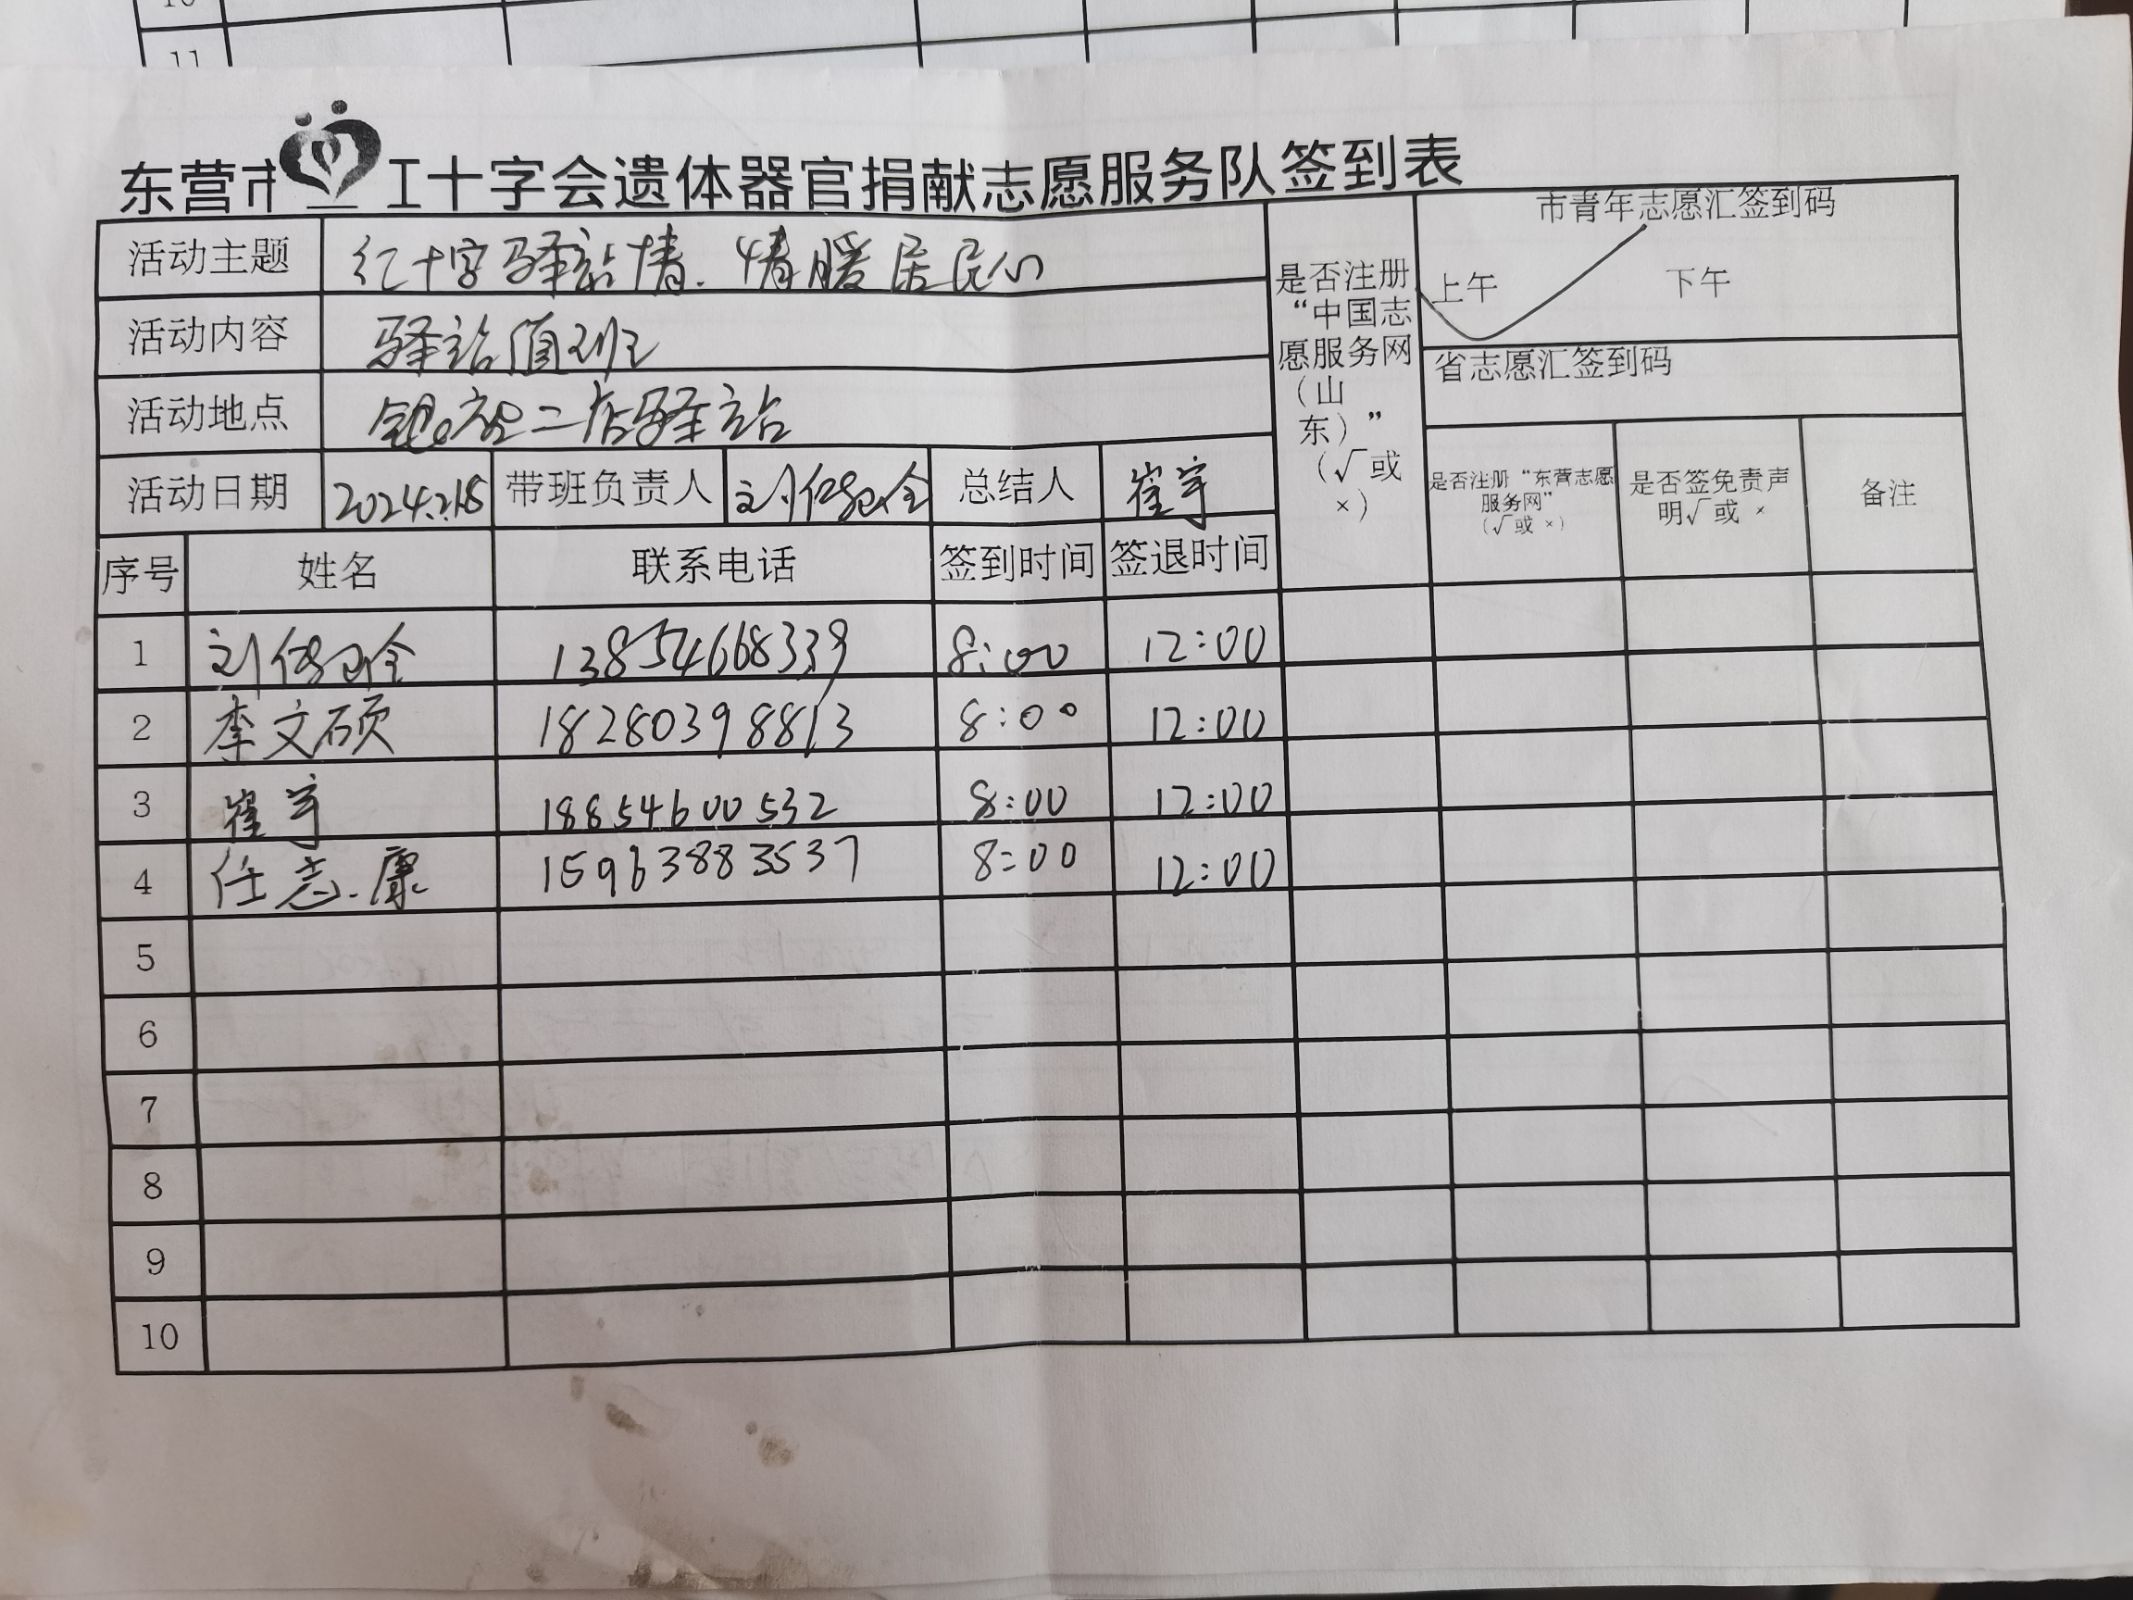 11
东营市 工十字会遗体器官捐献志愿服务队签到表
活动主题 红十字驿站情.情暖居民心
活动内容 驿站值班
活动地点 银座二店驿站
活动日期 2024.2.18 带班负责人 总结人 崔宇
是否注册“中国志愿服务网(山东)”(√或×)
市青年志愿汇签到码
上午 下午
省志愿汇签到码
是否注册“东营志愿服务网”(√或×) 是否签免责声明√或× 备注
序号 姓名 联系电话 签到时间 签退时间
1 13854668339 8:00 12:00
2 李文硕 18280398813 8:00 12:00
3 崔宇 18854600532 8:00 12:00
4 任志康 15963883537 8:00 12:00
5
6
7
8
9
10